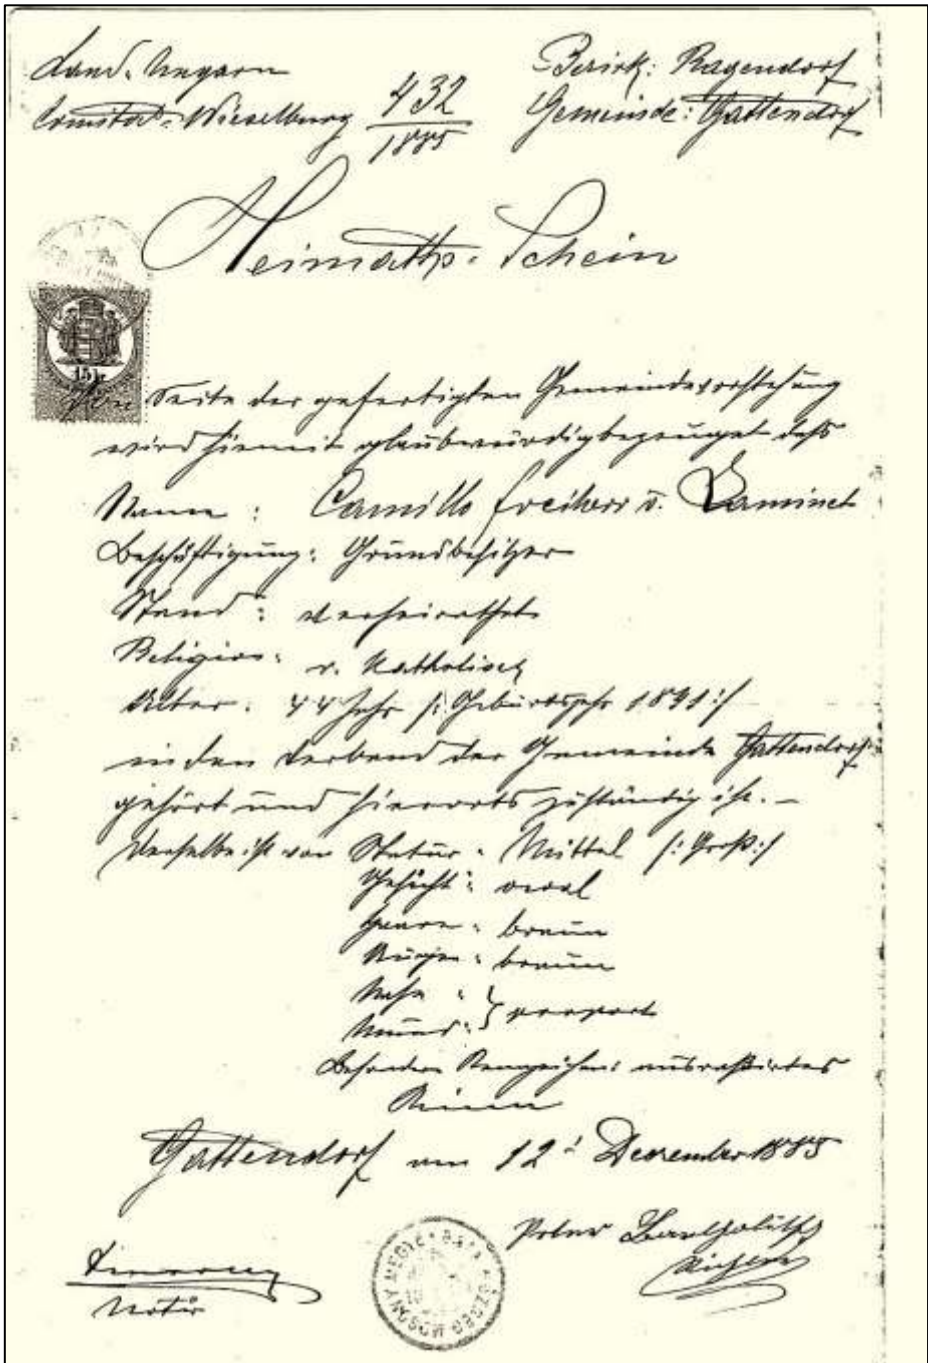 Land: Ungarn
Bezirk: Ragendorf
Comitat: Wieselburg
432
1885
Gemeinde: Gattendorf
Heimaths-Schein
15 kr
Von Seite der gefertigten Gemeindevorstehung
wird hiemit glaubwürdig bezeuget daß
Name: Camillo Freiherr v. Laminet
Beschäftigung: Grundbesitzer
Stand: verheirathet
Religion: r. katholisch
Alter: 44 Jahr /: Geburtsjahr 1841 :/
in den Verband der Gemeinde Gattendorf
gehört und hierorts zuständig ist. –
Derselbe ist von Statur: Mittel /: Groß :/
Gesicht: oval
Haare: braun
Augen: braun
Nase:
Mund: } proport
Besondere Kennzeichen: ausrasirtes
Kinn
Gattendorf am 12t December 1885
Peter
Richter
Notär
MOSONY MEGYE